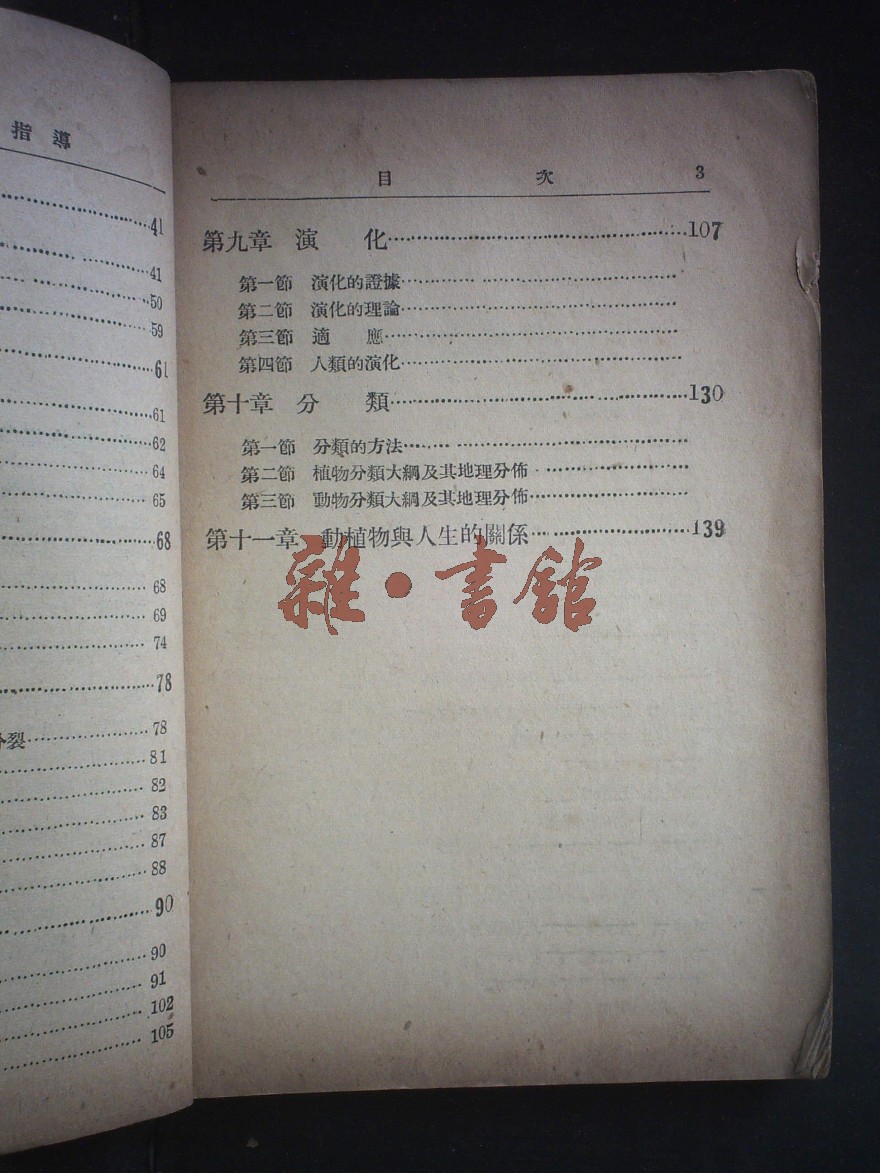 指導
41
41
50
59
61
61
62
64
65
68
68
69
74
78
分裂 78
81
82
83
87
88
90
90
91
102
105
目次 3
第九章 演化 107
第一節 演化的證據
第二節 演化的理論
第三節 適應
第四節 人類的演化
第十章 分類 130
第一節 分類的方法
第二節 植物分類大綱及其地理分佈
第三節 動物分類大綱及其地理分佈
第十一章 動植物與人生的關係 139
雜·書館